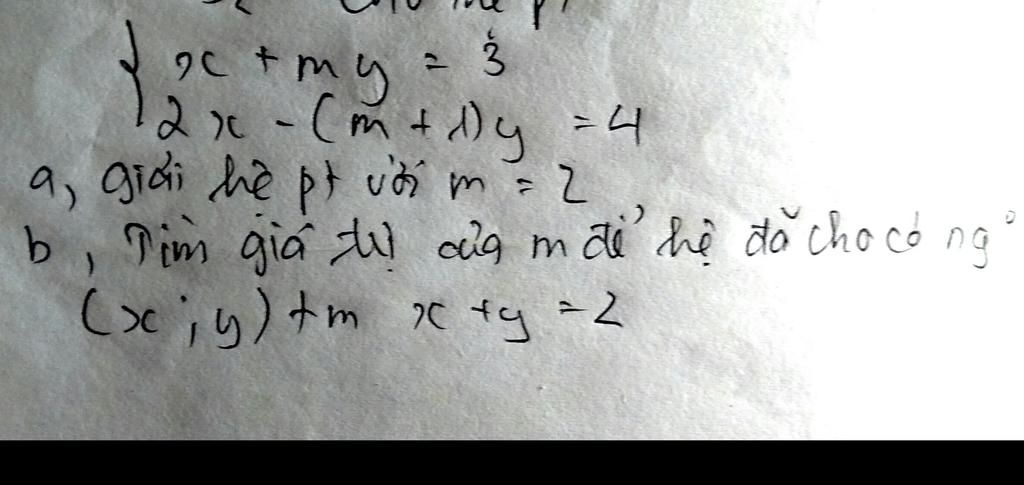 x + my = 3
2x - (m + 1)y = 4
a, giải hệ pt với m = 2
b, Tìm giá trị của m để hệ đã cho có ng°
(x; y) t/m x + y = 2